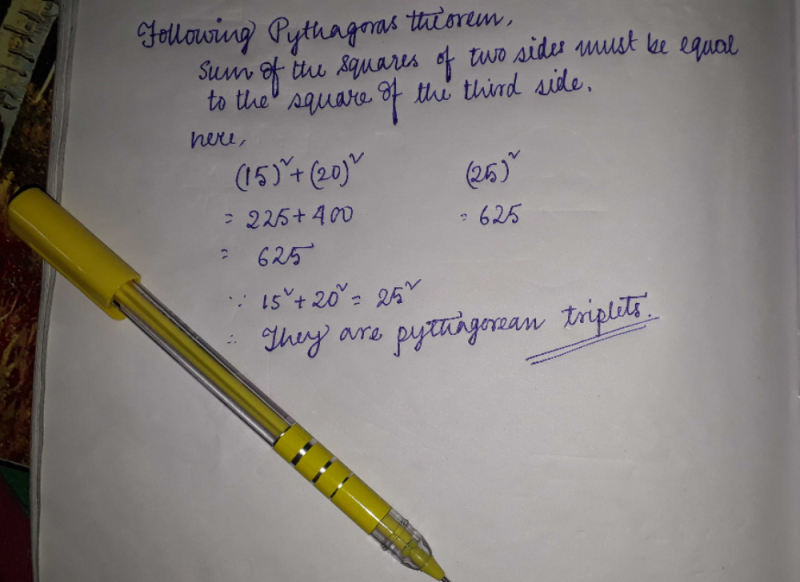 Following Pythagoras theorem,
Sum of the squares of two sides must be equal
to the square of the third side.
here,
(15)² + (20)² (25)²
= 225 + 400 = 625
= 625
∵ 15² + 20² = 25²
∴ They are pythagorean triplets.